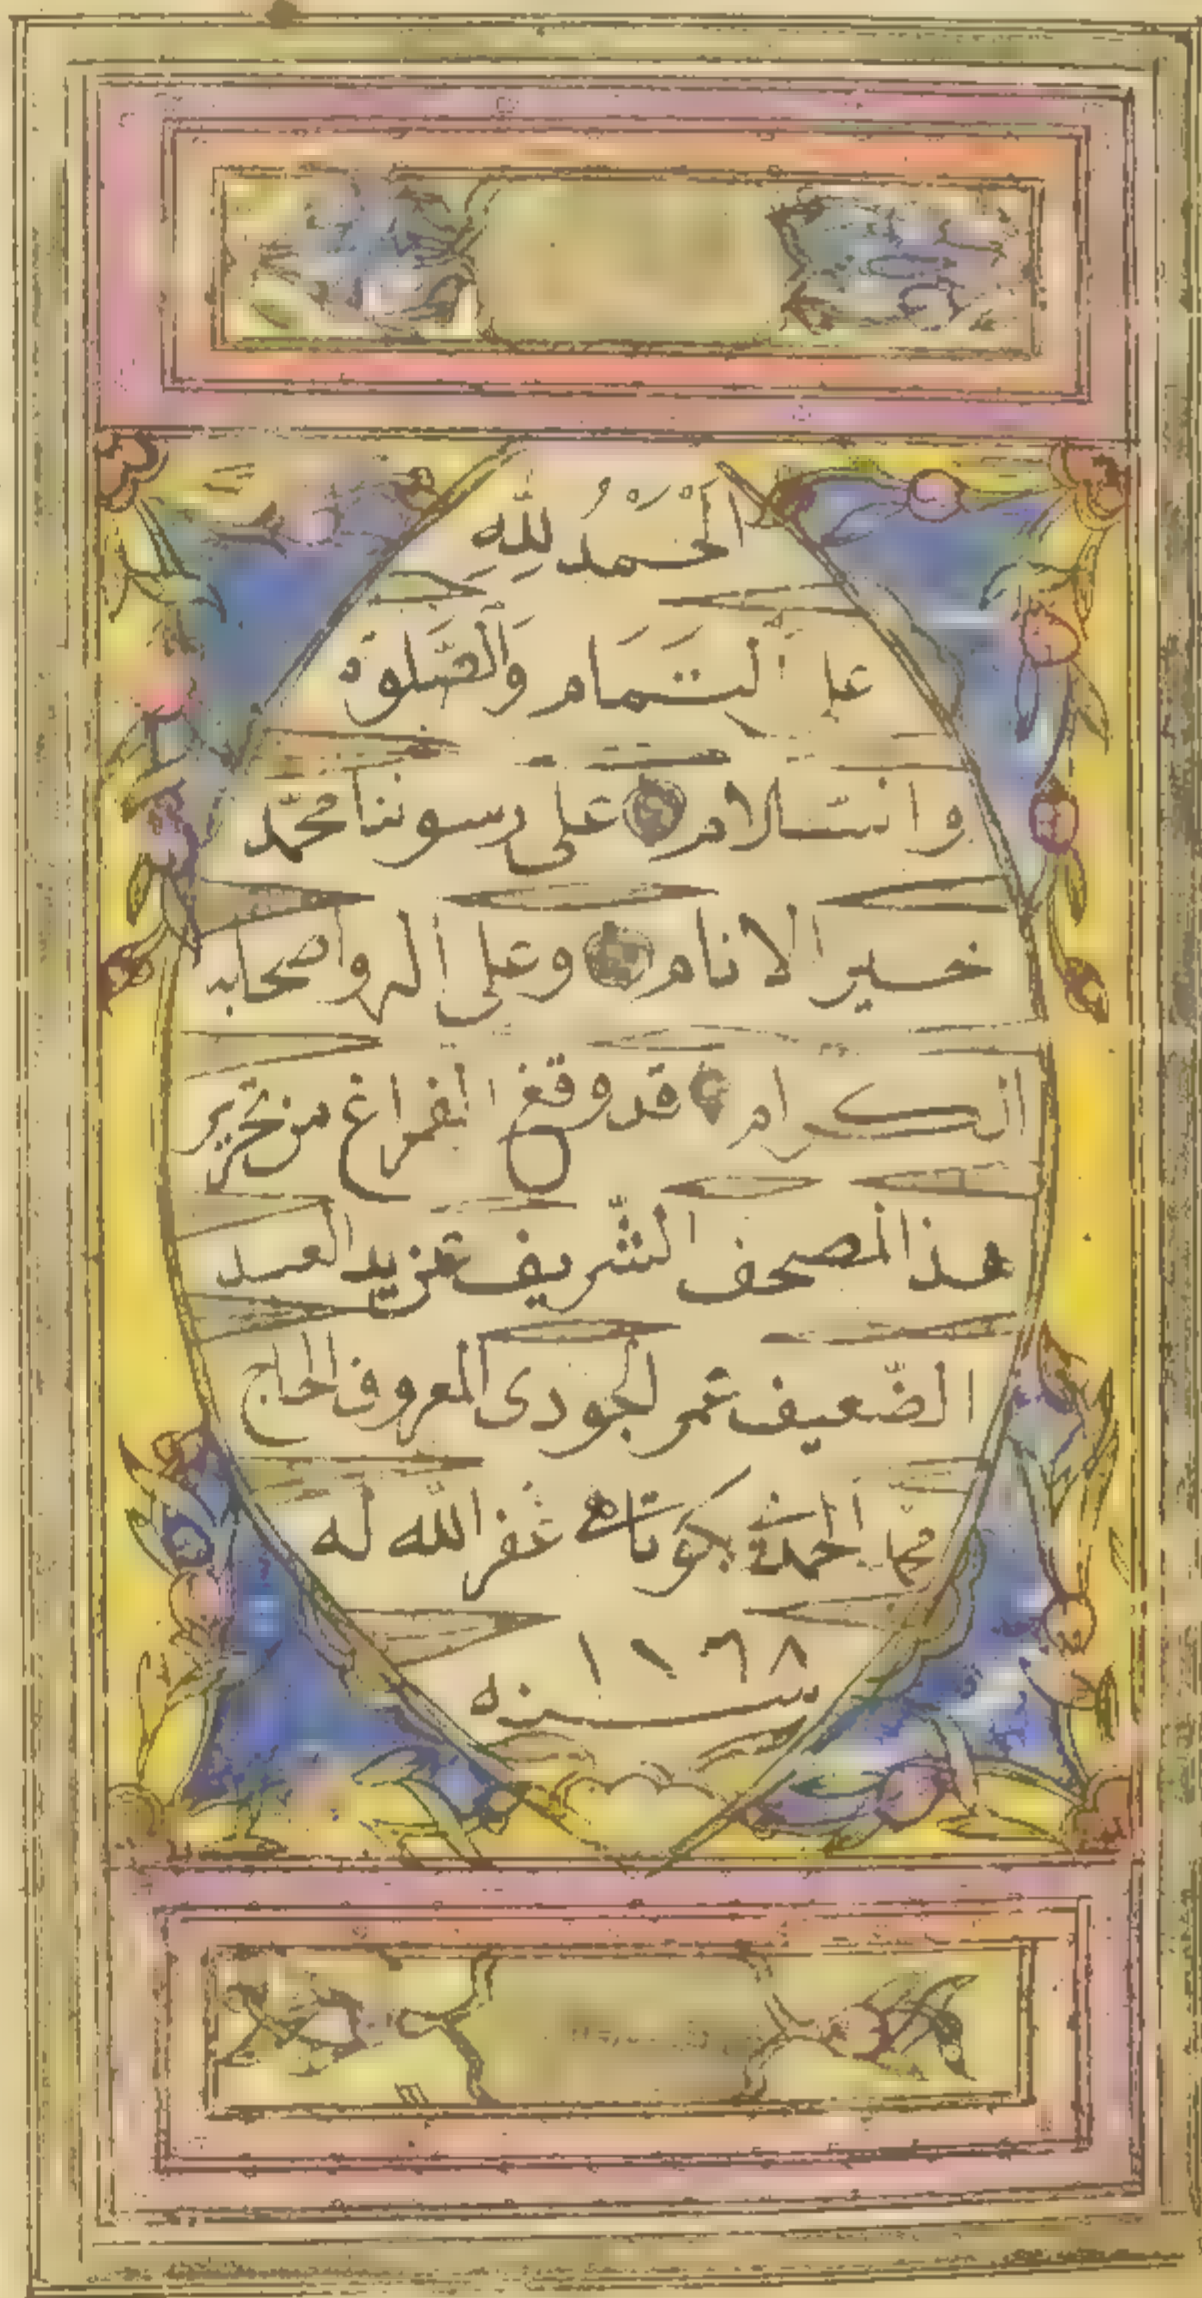 الْحَمْدُ لِلّٰهِ
على التَّمَام وَالصَّلوة
والسّلام على رسولنا محمّد
خير الانام وعلى اله واصحابه
الكرام قد وقع الفراغ من تحرير
هذا المصحف الشّريف عن يد العبد
الضّعيف عمر الجودى المعروف الحاج
غفر الله له
سنه ١١٦٨